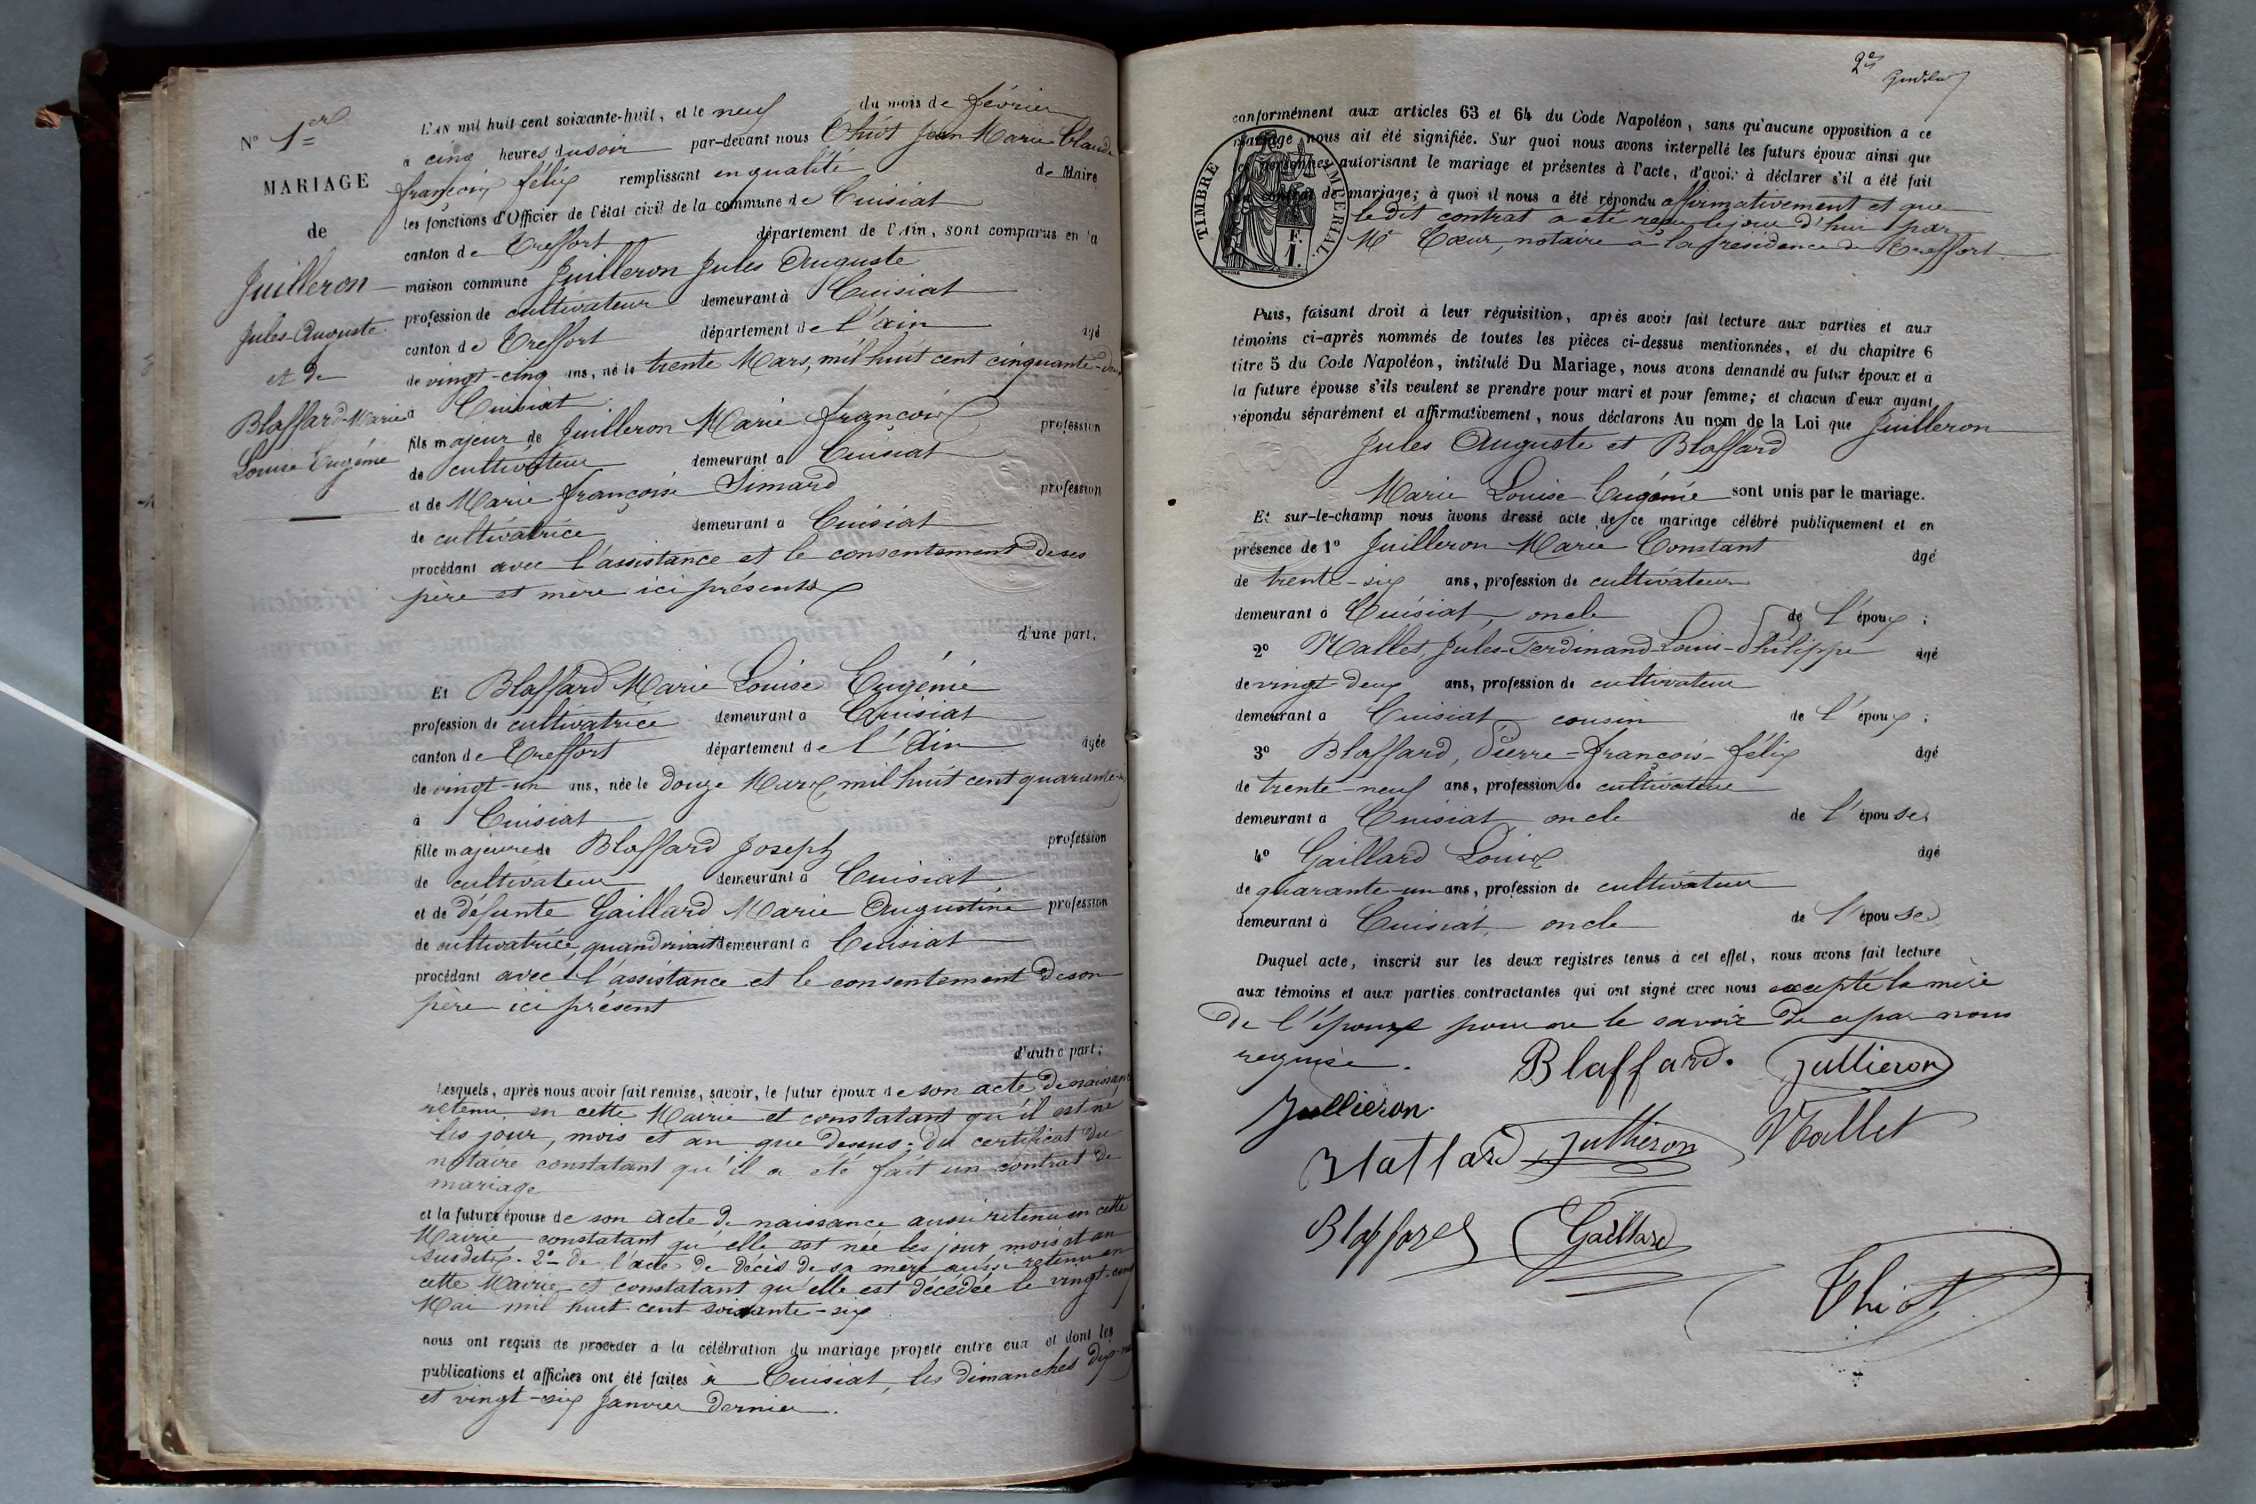 N° 1er
MARIAGE
de
Juilleron
Jules-Auguste
et de
Blaffard-Marie
Louise Eugénie
L'AN mil huit cent soixante-huit, et le neuf du mois de février
à cinq heures du soir par-devant nous Chiot Jean Marie Claude
françois félix remplissant en qualité de Maire
les fonctions d'Officier de l'état civil de la commune de Cuisiat
canton de Treffort département de l'Ain, sont comparus en la
maison commune Juilleron Jules Auguste
profession de cultivateur demeurant à Cuisiat
canton de Treffort département de l'ain âgé
de vingt-cinq ans, né le trente Mars, mil huit cent cinquante-deux
à Cuisiat
fils majeur de Juilleron Marie françois profession
de cultivateur demeurant à Cuisiat
et de Marie françoise Simard profession
de cultivatrice demeurant à Cuisiat
procédant avec l'assistance et le consentement de ses
père et mère ici présents
d'une part,
Et Blaffard Marie Louise Eugénie
profession de cultivatrice demeurant à Cuisiat
canton de Treffort département de l'Ain âgée
de vingt-un ans, née le douze Mars, mil huit cent quarante
à Cuisiat
fille majeure de Blaffard Joseph profession
de cultivateur demeurant à Cuisiat
et de défunte Gaillard Marie Augustine profession
de cultivatrice, quand vivait demeurant à Cuisiat
procédant avec l'assistance et le consentement de son
père ici présent
d'autre part;
Lesquels, après nous avoir fait remise, savoir, le futur époux de son acte de naissance
retenu en cette Mairie et constatant qu'il est né
les jour, mois et an que dessus. du certificat du
notaire constatant qu'il a été fait un contrat de
mariage
et la future épouse de son acte de naissance aussi retenu en cette
Mairie constatant qu'elle est née les jour, mois et an
susdits. 2° de l'acte de décès de sa mère aussi retenu en
cette Mairie et constatant qu'elle est décédée le vingt
Mai mil huit cent soixante-six
nous ont requis de procéder à la célébration du mariage projeté entre eux et dont les
publications et affiches ont été faites à Cuisiat, les dimanches dix-neuf
et vingt-six Janvier dernier.
2e
conformément aux articles 63 et 64 du Code Napoléon, sans qu'aucune opposition à ce
mariage nous ait été signifiée. Sur quoi nous avons interpellé les futurs époux ainsi que
les personnes autorisant le mariage et présentes à l'acte, d'avoir à déclarer s'il a été fait
contrat de mariage; à quoi il nous a été répondu affirmativement et que
le dit contrat a été reçu le jour d'hui par
Me Cœur, notaire à la résidence de Treffort.
TIMBRE IMPERIAL.
F.
1.
Puis, faisant droit à leur réquisition, après avoir fait lecture aux parties et aux
témoins ci-après nommés de toutes les pièces ci-dessus mentionnées, et du chapitre 6
titre 5 du Code Napoléon, intitulé Du Mariage, nous avons demandé au futur époux et à
la future épouse s'ils veulent se prendre pour mari et pour femme; et chacun d'eux ayant
répondu séparément et affirmativement, nous déclarons Au nom de la Loi que Juilleron
Jules Auguste et Blaffard
Marie Louise Eugénie sont unis par le mariage.
Et sur-le-champ nous avons dressé acte de ce mariage célébré publiquement et en
présence de 1° Juilleron Marie Constant âgé
de trente-six ans, profession de cultivateur
demeurant à Cuisiat, oncle de l'époux;
2° Mallet, Jules-Ferdinand-Louis-Philippe âgé
de vingt deux ans, profession de cultivateur
demeurant à Cuisiat cousin de l'époux;
3° Blaffard, Pierre-françois-félix âgé
de trente-neuf ans, profession de cultivateur
demeurant à Cuisiat oncle de l'épouse
4° Gaillard Louis âgé
de quarante-un ans, profession de cultivateur
demeurant à Cuisiat oncle de l'épouse
Duquel acte, inscrit sur les deux registres tenus à cet effet, nous avons fait lecture
aux témoins et aux parties contractantes qui ont signé avec nous excepté la mère
de l'époux pour ne le savoir de ce par nous
requise.
Blaffard. Jullieron
Jullieron.
Blaffard Jullieron Mallet
Blaffard Gaillard
Chiot